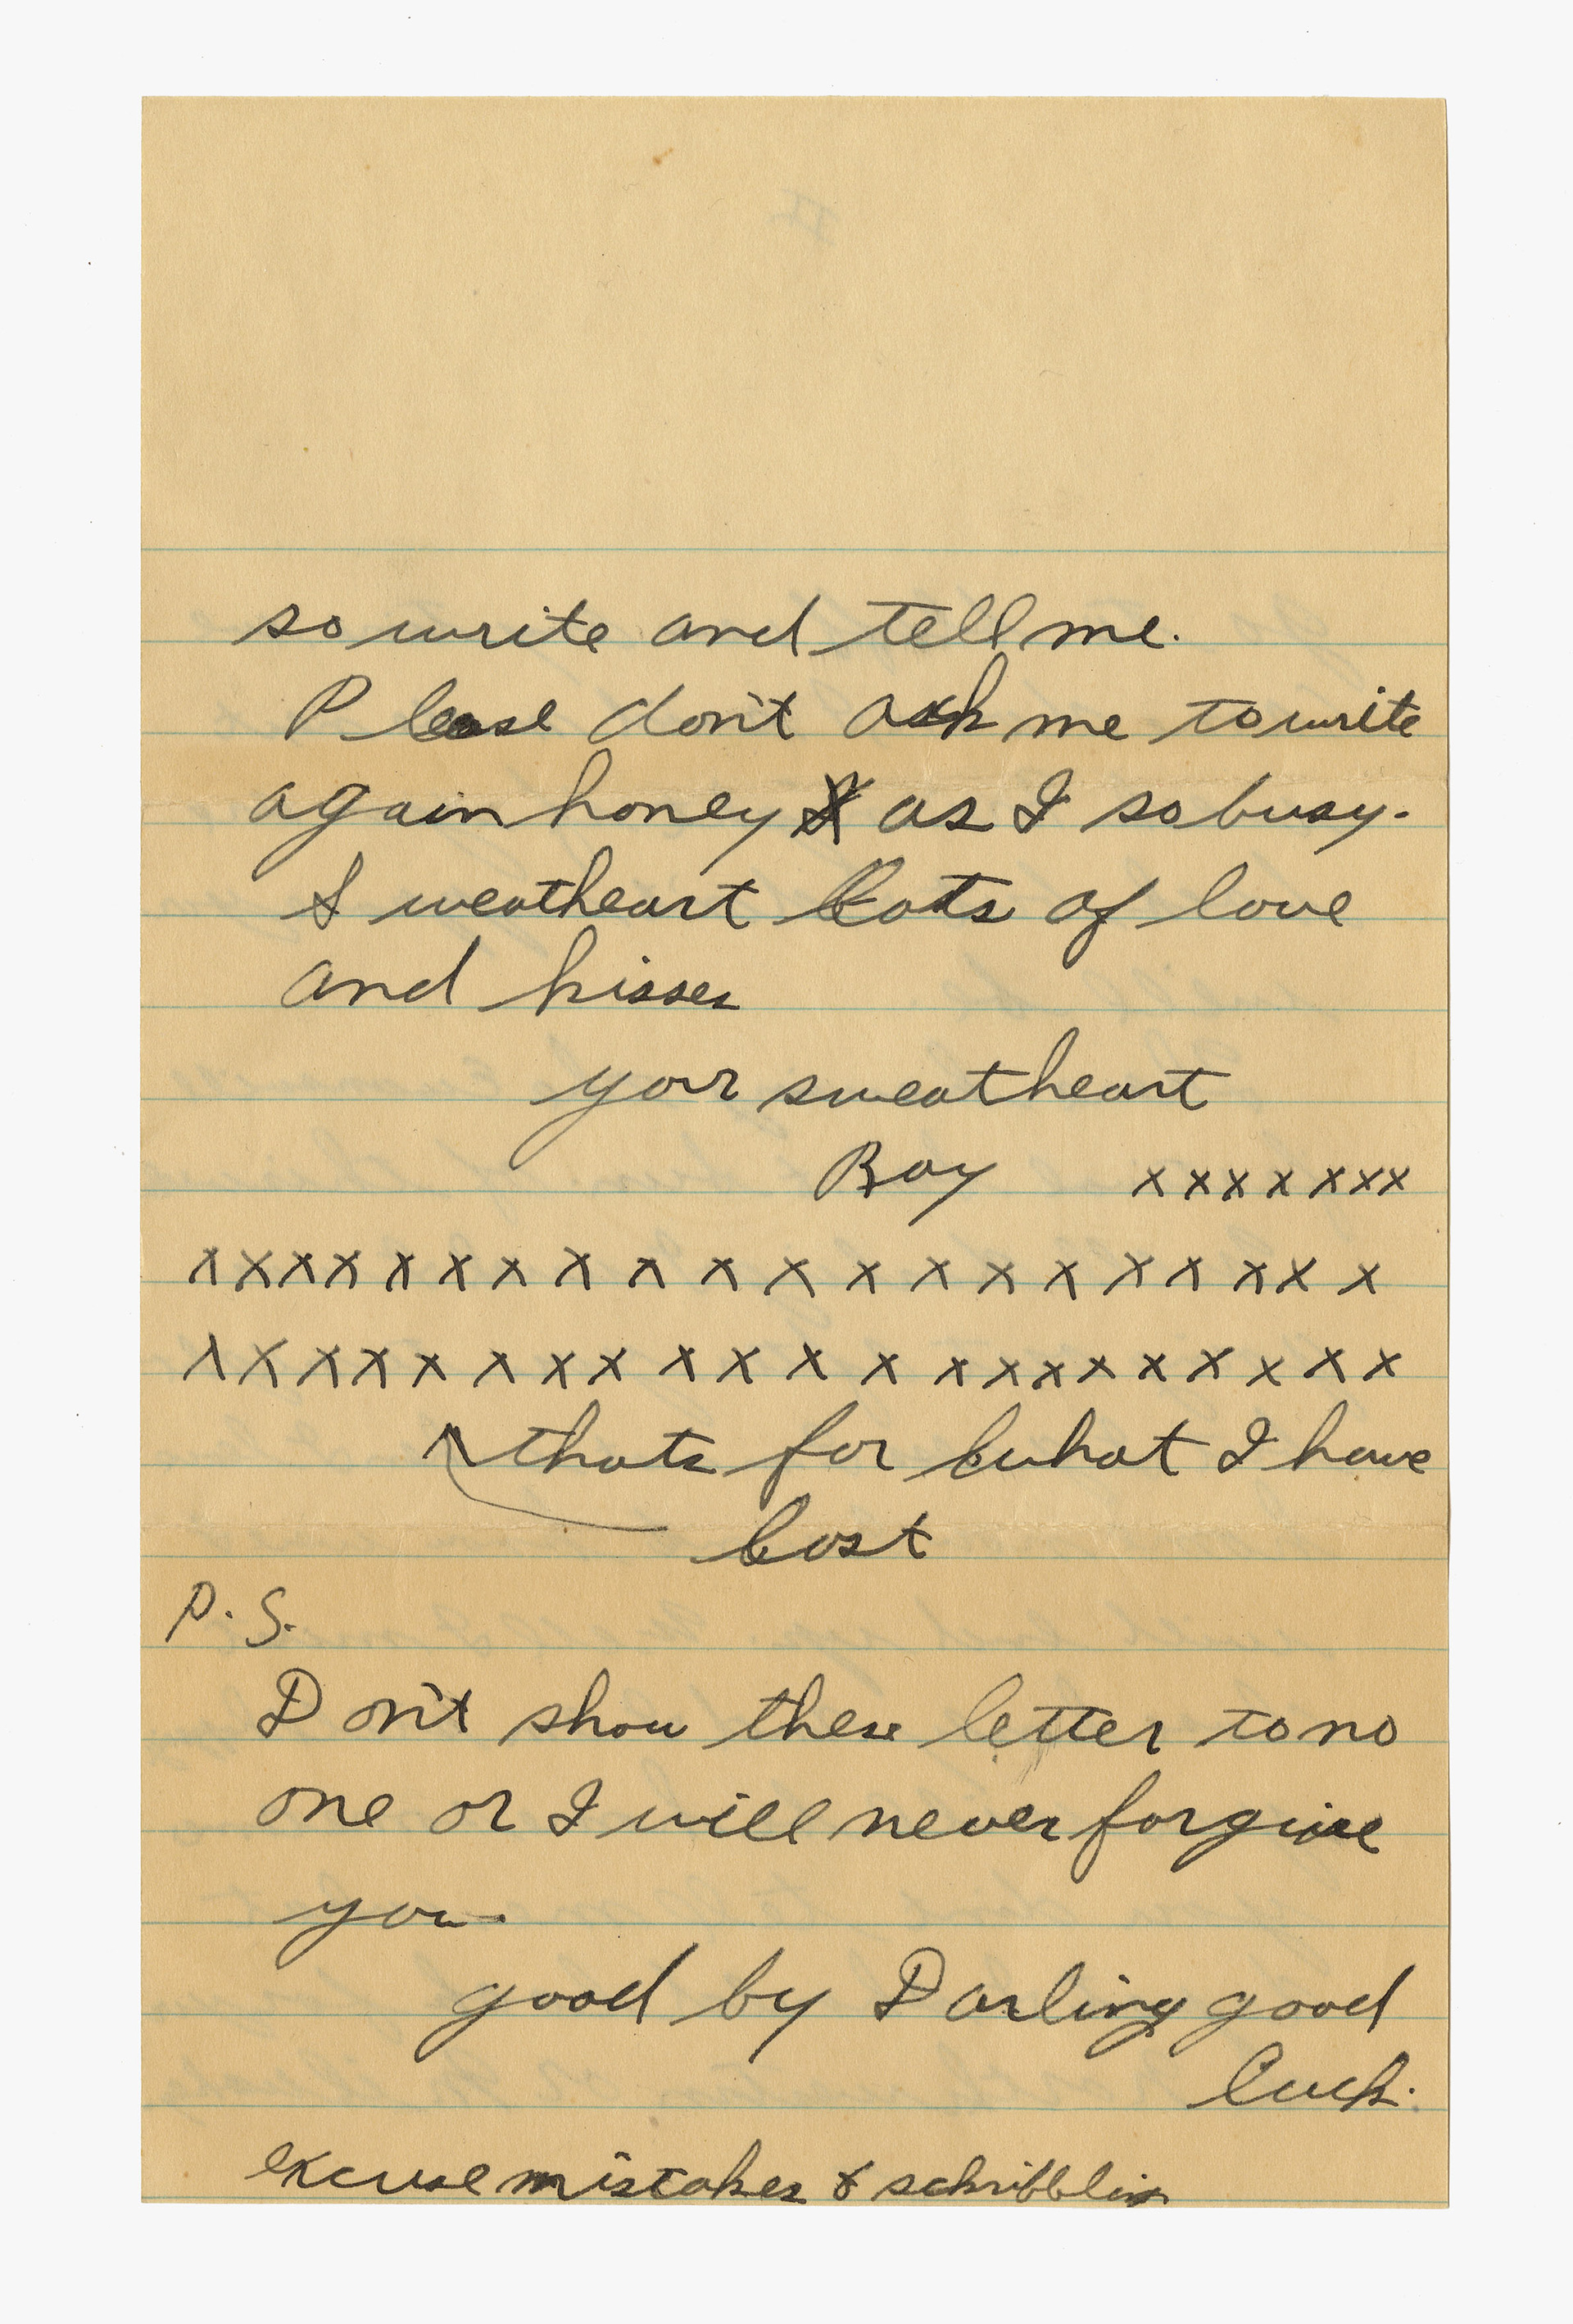 so write and tell me.
Please don't ask me to write
again honey as I so busy.
Sweatheart Lots of love
and kisses
your sweatheart
Ray xxxxxxx
xxxxxxxxxxxxxxxxxxxx
xxxxxxxxxxxxxxxxxxxxx
thats for what I have
lost
P.S.
Don't show these letter to no
one or I will never forgive
you.
good by Darling good
luck.
excuse mistakes & schribblin